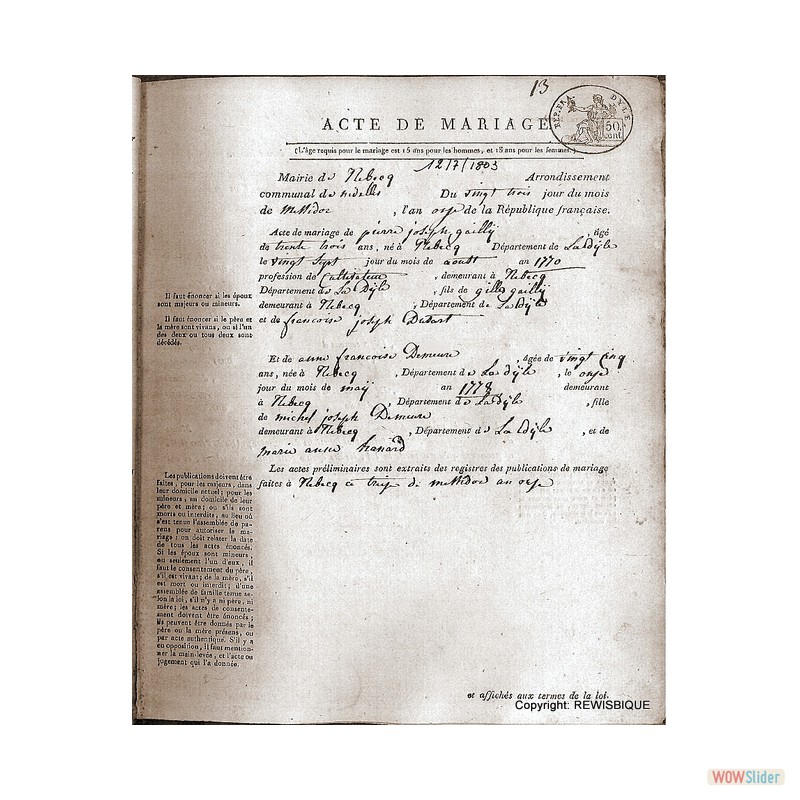 13
ACTE DE MARIAGE
REP. FRA. DYLE.
50. cent.
(L'âge requis pour le mariage est 15 ans pour les hommes, et 15 ans pour les femmes.)
12/7/1803
Mairie de Rebecq Arrondissement
communal de nivelles Du vingt trois jour du mois
de Messidor , l'an onse de la République française.
Acte de mariage de pierre joseph gailly , âgé
de trente trois ans, né à Rebecq Département de La Dyle
le vingt sept jour du mois de aoutt an 1770
profession de Cultivateur , demeurant à Rebecq
Département de La Dyle , fils de gilles gailly
demeurant à Rebecq , Département de La Dyle
et de francoise joseph Dutart
Il faut énoncer si les époux
sont majeurs ou mineurs.
Il faut énoncer si le père et
la mère sont vivans, ou si l'un
des deux ou tous deux sont
décédés.
Et de anne francoise Demeure , âgée de vingt cinq
ans, née à Rebecq , Département de La dyle , le onse
jour du mois de maij an 1778 demeurant
à Rebecq , Département de La Dyle , fille
de michel joseph Demeure
demeurant à Rebecq , Département de La Dyle , et de
marie anne hanard
Les actes préliminaires sont extraits des registres des publications de mariage
faites à Rebecq ce treise de messidor an onse
Les publications doivent être
faites, pour les majeurs, dans
leur domicile actuel; pour les
mineurs, au domicile de leur
père et mère; ou s'ils sont
morts ou interdits, au lieu où
s'est tenue l'assemblée de pa-
rens pour autoriser le ma-
riage; on doit relater la date
de tous les actes énoncés.
Si les époux sont mineurs,
ou seulement l'un d'eux, il
faut le consentement du père,
s'il est vivant; de la mère, s'il
est mort ou interdit; d'une
assemblée de famille tenue se-
lon la loi, s'il n'y a ni père, ni
mère; les actes de consente-
ment doivent être énoncés;
ils peuvent être donnés par le
père ou la mère présens, ou
par acte authentique. S'il y a
eu opposition, il faut mention-
ner la main-levée, et l'acte ou
jugement qui l'a donnée.
et affichés aux termes de la loi.
Copyright: REWISBIQUE
WOWSlider